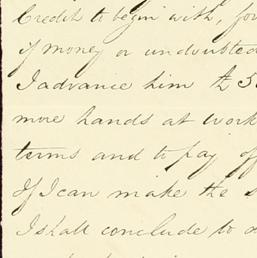 Credit to begin with, for
if money or undoubted
I advance him
more hands at work
terms and to pay of
If I can make the s
I shall conclude to